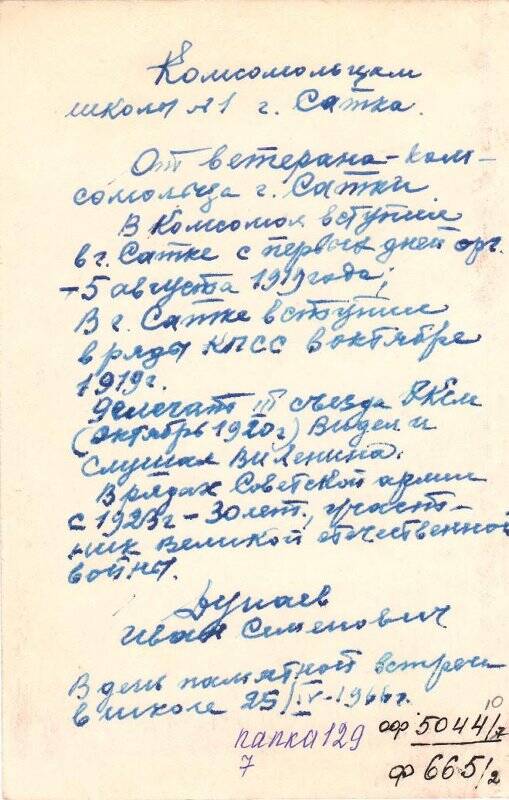 Комсомольцам
школы №1 г. Сатка.
От ветерана-ком-
сомольца г. Сатки
В Комсомол вступил
в г. Сатке с первых дней орг.
-5 августа 1919 года;
В г. Сатке вступил
в ряды КПСС в октябре
1919г.
Делегат III съезда РКСМ
(октябрь 1920г) Видел и
слушал В.И Ленина.
В рядах Советской армии
с 1923г - 30 лет, участ-
ник Великой отечественной
войны.
Дунаев
Иван Семенович
В день памятной встречи
в школе 25/IV-1966г.
папка 129
7
оф 5044/7
10
ф 665/2